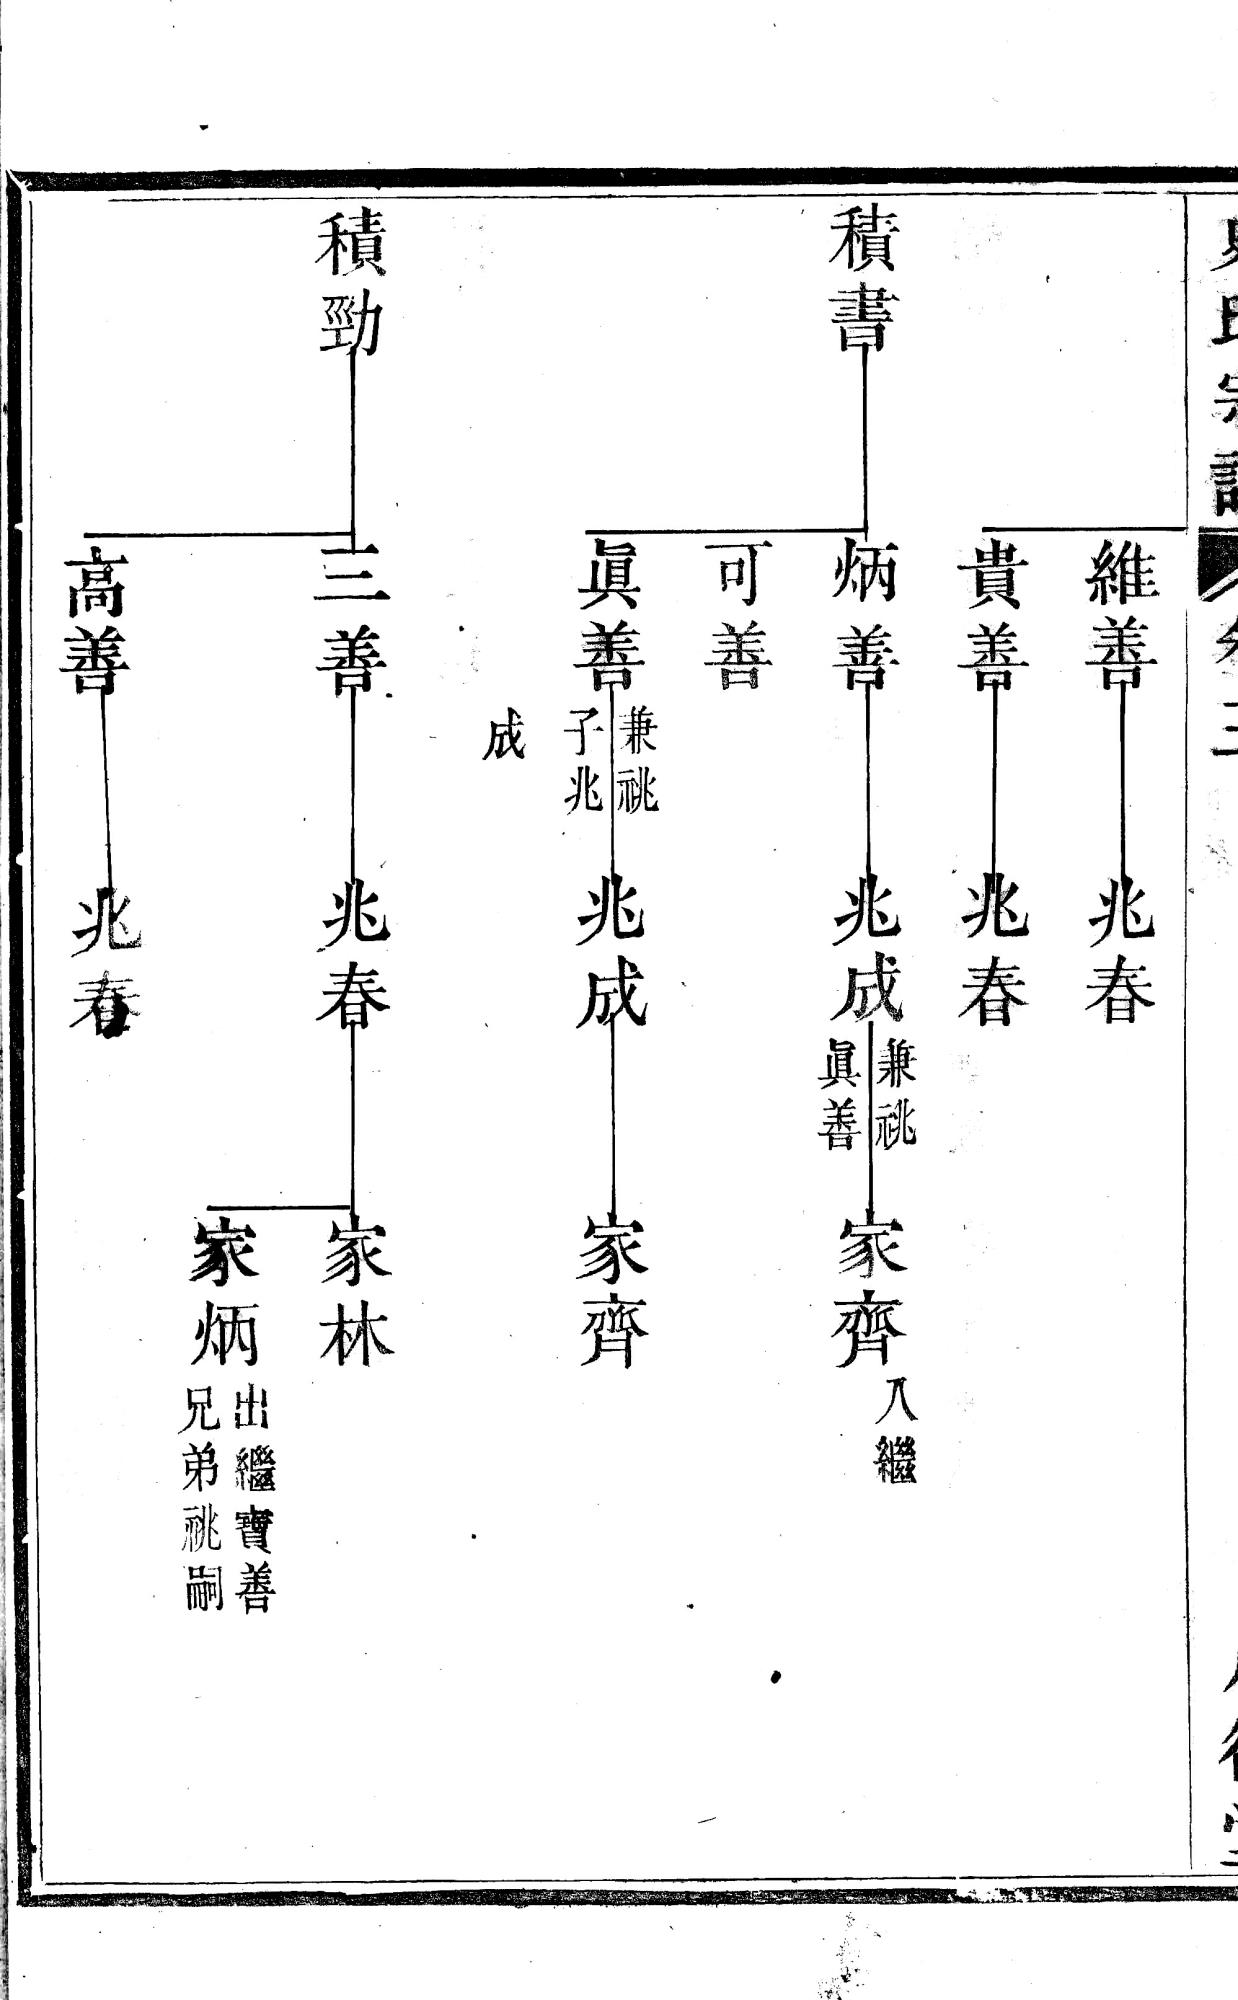 氏宗譜
卷三
維善
兆春
貴善
兆春
積書
炳善
兆成
兼祧
眞善
家齊
入繼
可善
眞善
兼祧
子兆
成
兆成
家齊
積勁
三善
兆春
家林
家炳
出繼寶善
兄弟祧嗣
高善
兆春